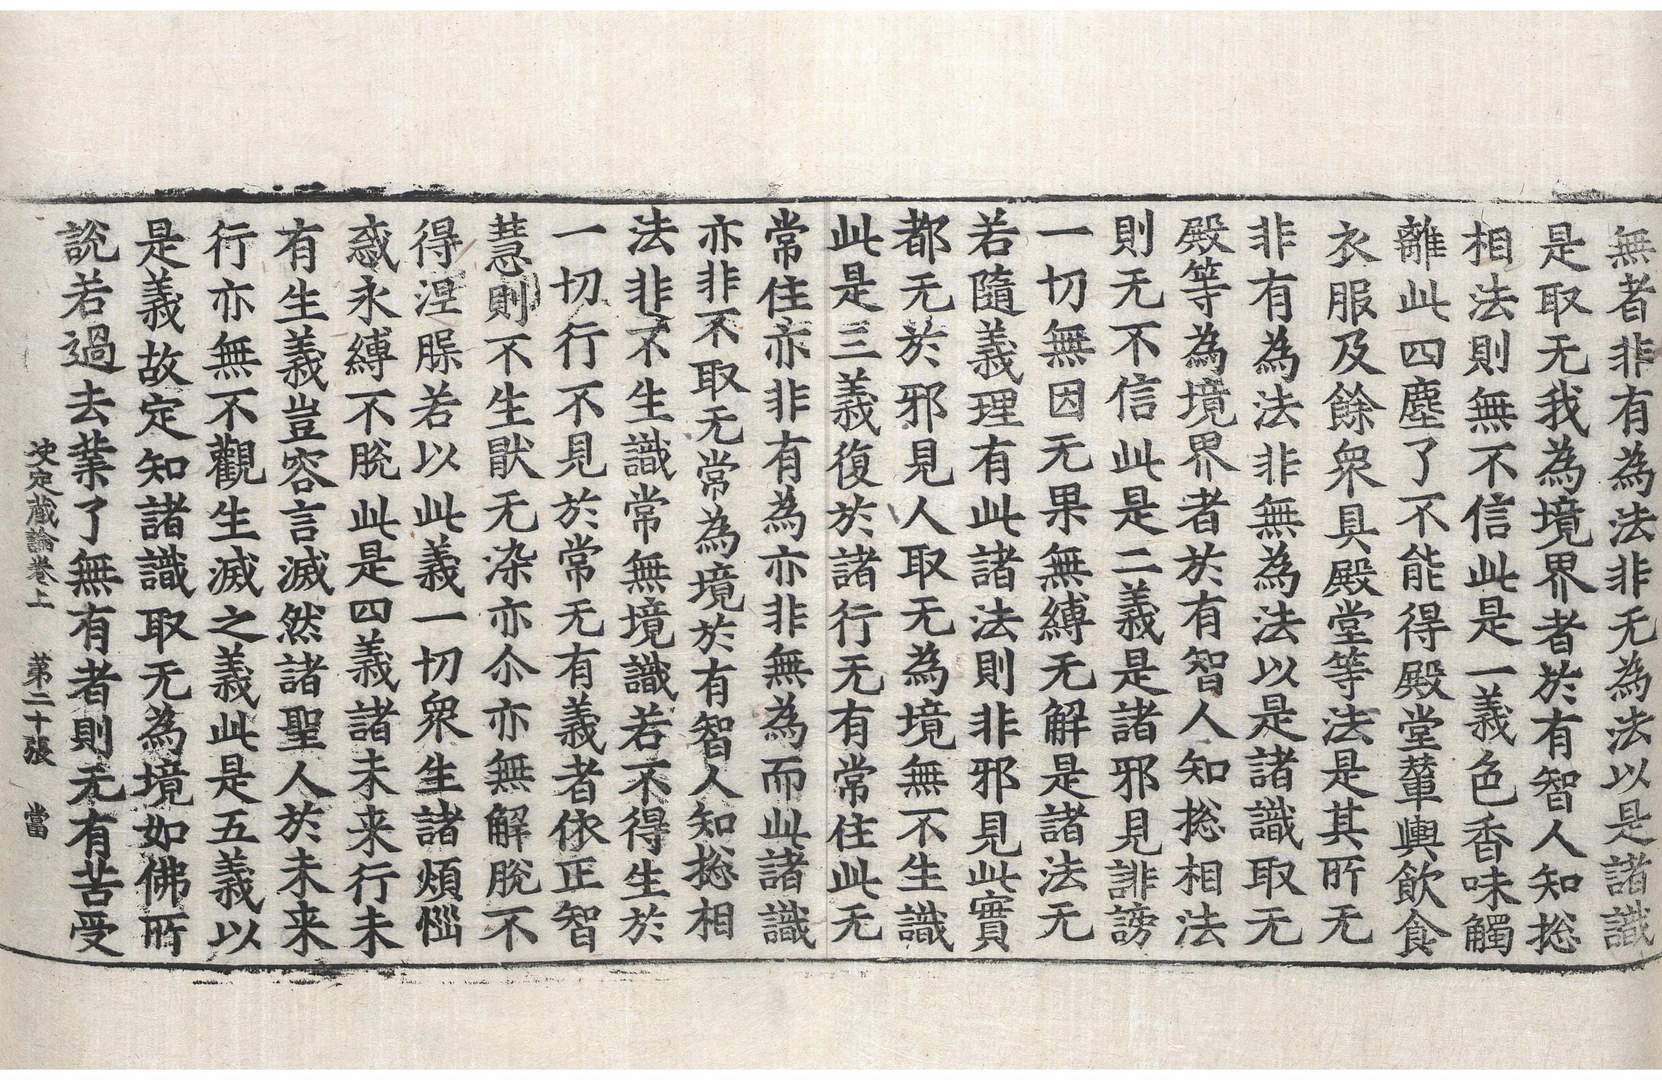 無者非有為法非无為法以是諸識
是取无我為境界者於有智人知捴
相法則無不信此是一義色香味觸
離此四塵了不能得殿堂輦輿飲食
衣服及餘衆具殿堂等法是其所无
非有為法非無為法以是諸識取无
殿等為境界者於有智人知捴相法
則无不信此是二義是諸邪見誹謗
一切無因无果無縛无解是諸法无
若隨義理有此諸法則非邪見此實
都无於邪見人取无為境無不生識
此是三義復於諸行无有常住此无
常住亦非有為亦非無為而此諸識
亦非不取无常為境於有智人知捴相
法非不生識常無境識若不得生於
一切行不見於常无有義者依正智
慧則不生猒无染亦尒亦無解脫不
得涅槃若以此義一切衆生諸煩惱
惑永縛不脫此是四義諸未来行未
有生義豈容言滅然諸聖人於未来
行亦無不觀生滅之義此是五義以
是義故定知諸識取无為境如佛所
說若過去業了無有者則无有苦受
决定藏論卷上　第二十張　當